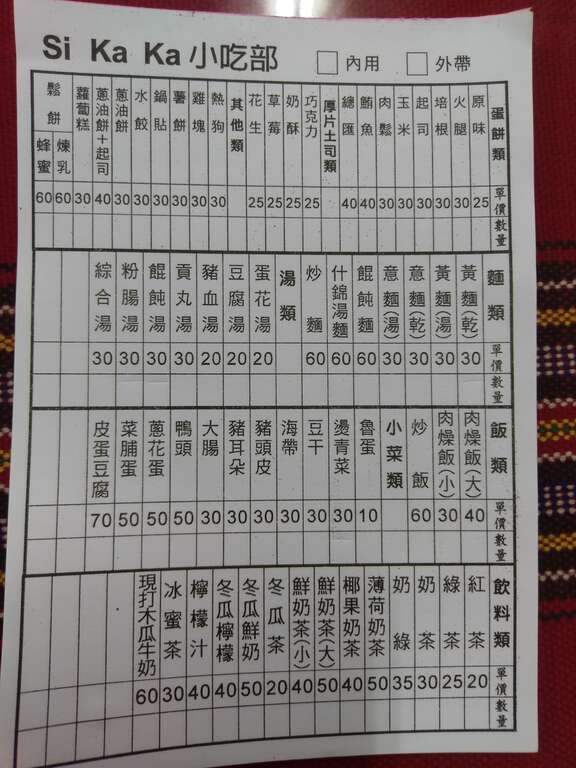 Si Ka Ka 小吃部 □ 內用 □ 外帶
蛋餅類 單價 數量
原味 25
火腿 30
培根 30
起司 30
玉米 30
肉鬆 30
鮪魚 40
總匯 40
厚片土司類
巧克力 25
奶酥 25
草莓 25
花生 25
其他類
熱狗 30
雞塊 30
薯餅 30
鍋貼 30
水餃 30
蔥油餅 30
蔥油餅+起司 40
蘿蔔糕 30
鬆餅
煉乳 60
蜂蜜 60
麵類 單價 數量
黃麵(乾) 30
黃麵(湯) 30
意麵(乾) 30
意麵(湯) 30
餛飩麵 60
什錦湯麵 60
炒麵 60
湯類
蛋花湯 20
豆腐湯 20
豬血湯 20
貢丸湯 30
餛飩湯 30
粉腸湯 30
綜合湯 30
飯類 單價 數量
肉燥飯(大) 40
肉燥飯(小) 30
炒飯 60
小菜類
魯蛋 10
燙青菜 30
豆干 30
海帶 30
豬頭皮 30
豬耳朵 30
大腸 30
鴨頭 50
蔥花蛋 50
菜脯蛋 50
皮蛋豆腐 70
飲料類 單價 數量
紅茶 20
綠茶 25
奶茶 30
奶綠 35
薄荷奶茶 50
椰果奶茶 40
鮮奶茶(大) 50
鮮奶茶(小) 40
冬瓜茶 20
冬瓜鮮奶 50
冬瓜檸檬 40
檸檬汁 40
冰蜜茶 30
現打木瓜牛奶 60